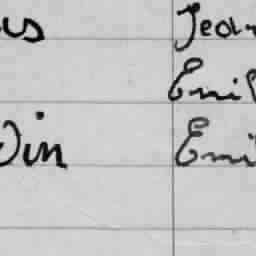 us Jean
Emil
Din Emil